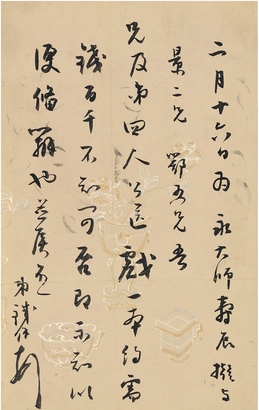 二月十六日为永大师寿辰拟与
景二兄鄂五兄吾
兄及弟四人公送戏一本约需
钱百千不知可否即示知以
便备办也并候近
弟